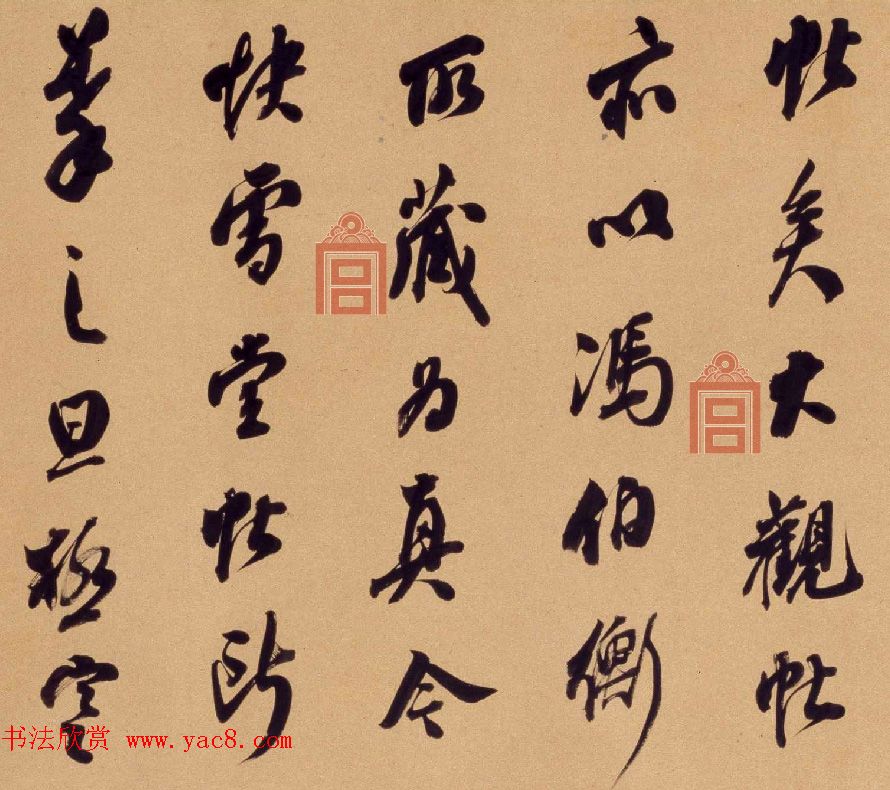 帖矣大觀帖
亦以馮伯衡
所藏為真今
快雪堂帖所
摹之旦極
书法欣赏 www.yac8.com